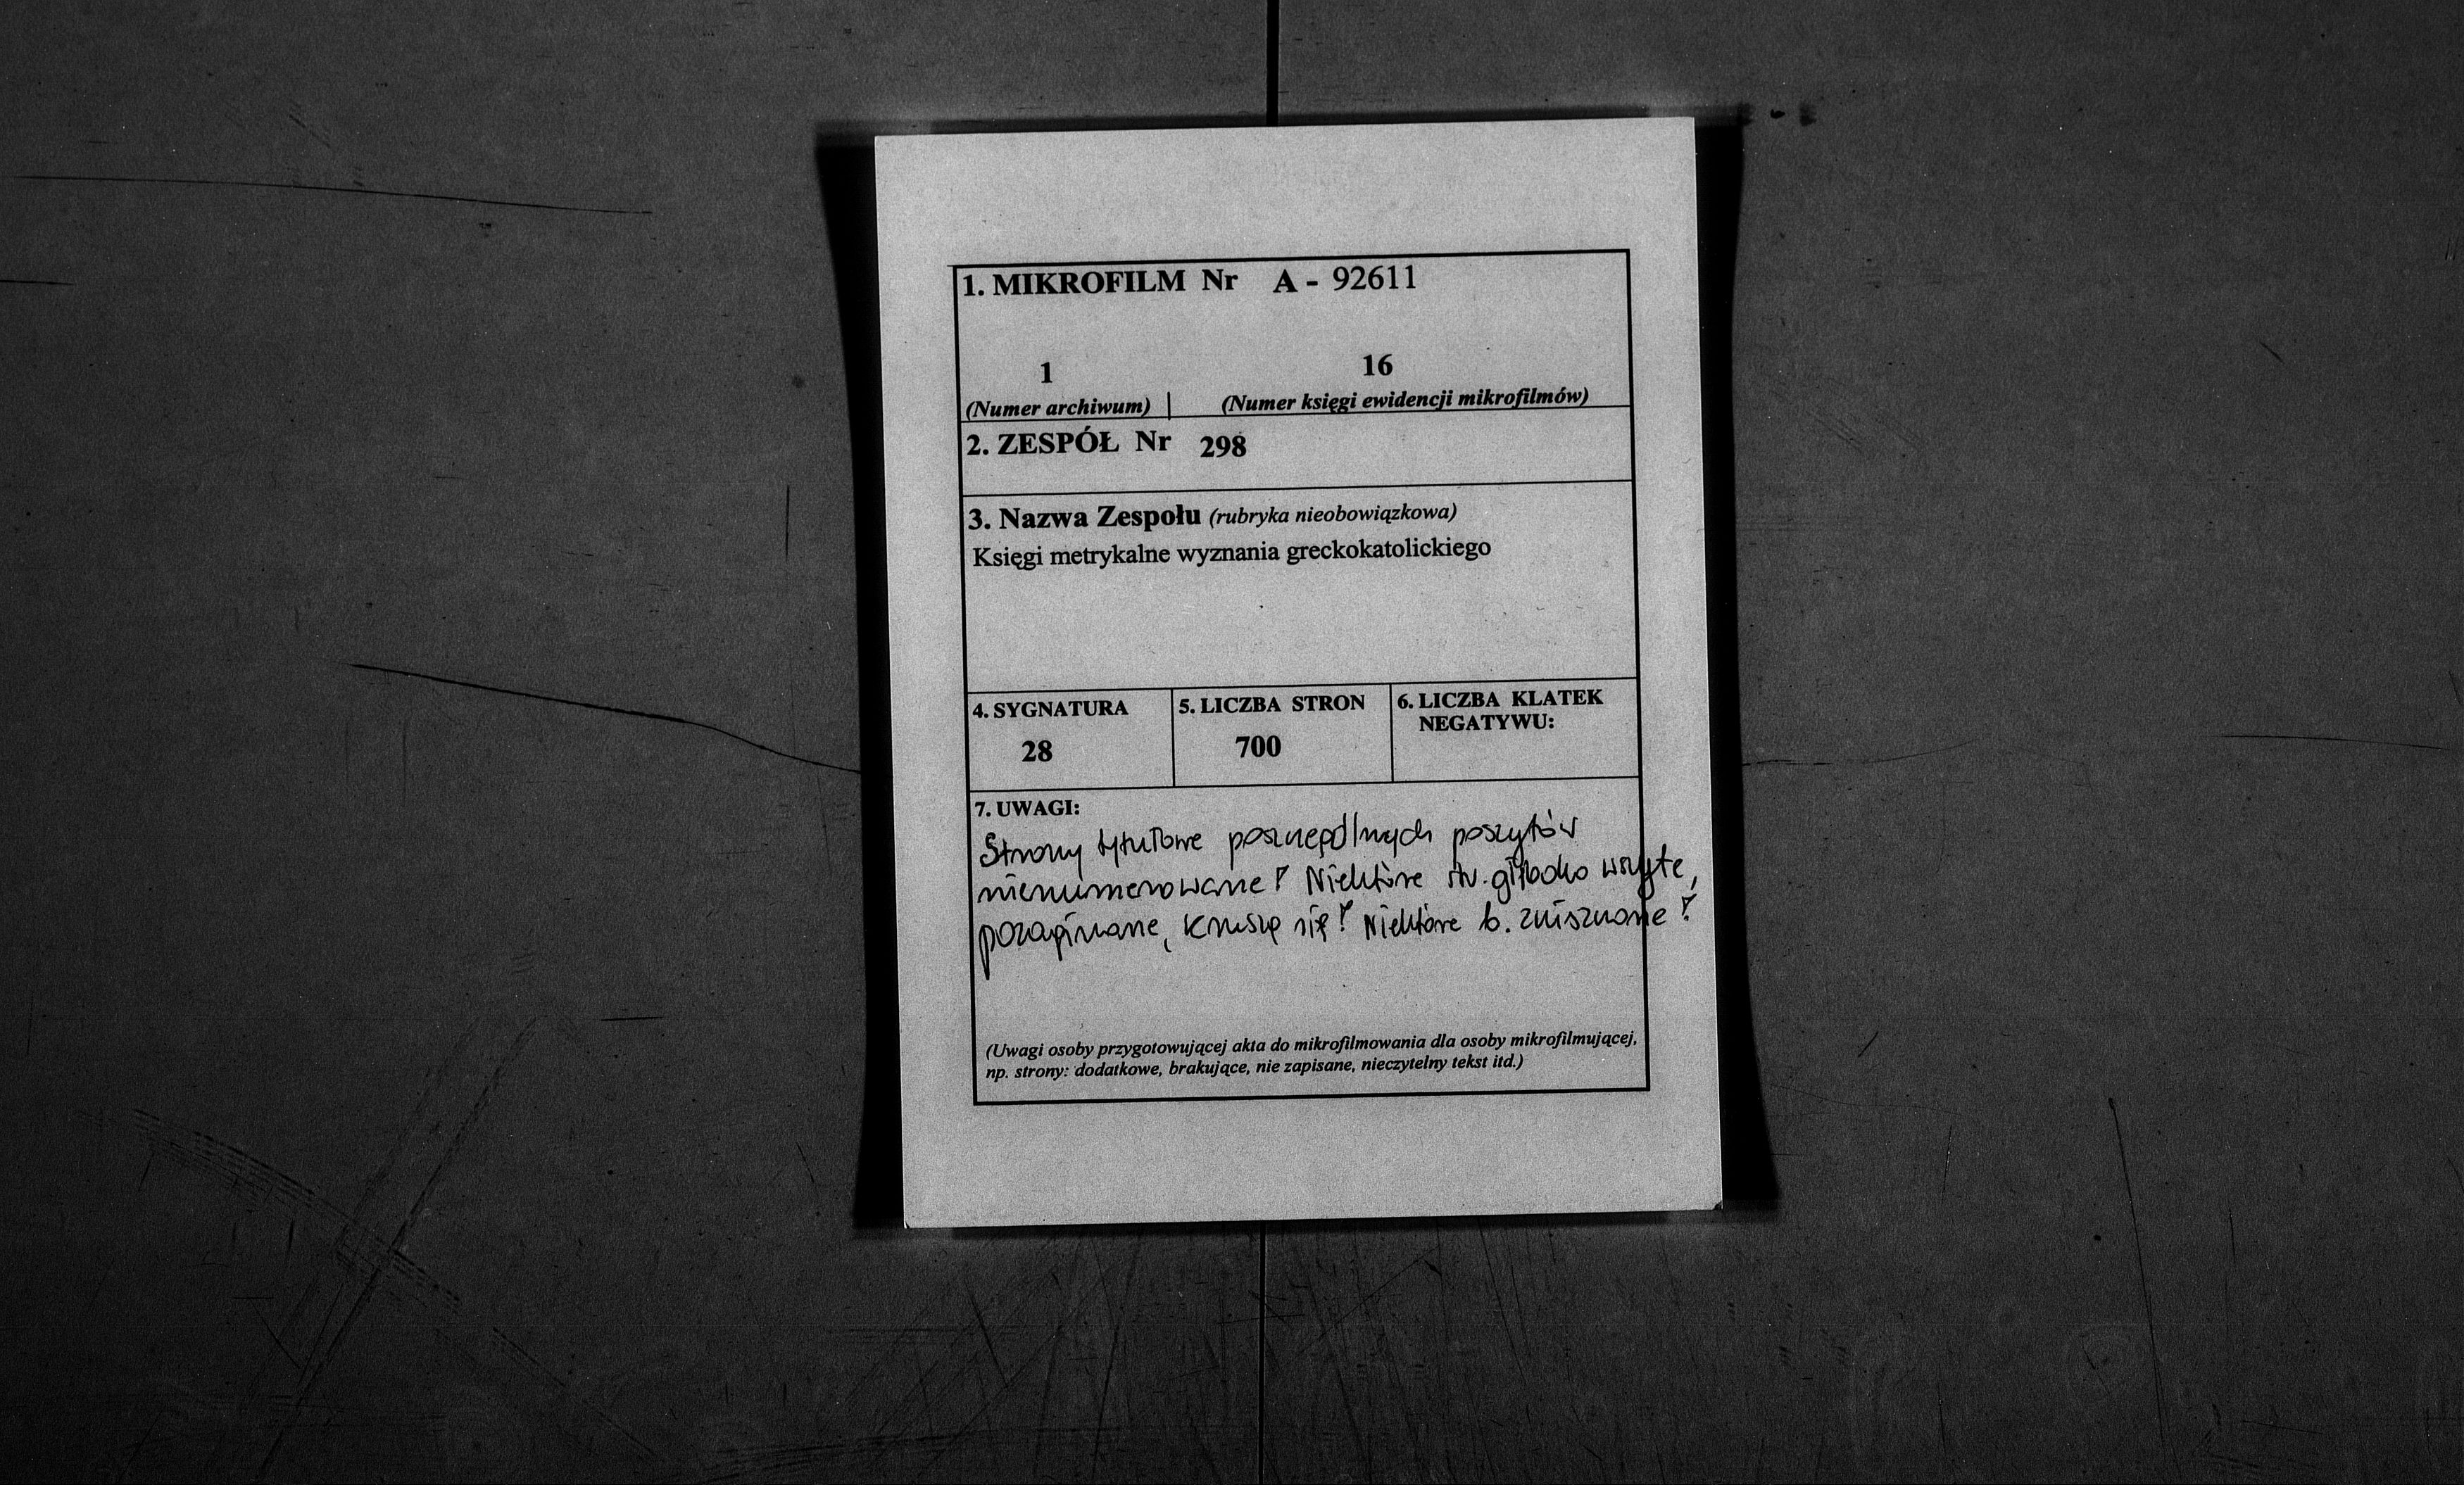 1. MIKROFILM Nr A - 92611
1 16
(Numer archiwum) | (Numer księgi ewidencji mikrofilmów)
2. ZESPÓŁ Nr 298
3. Nazwa Zespołu (rubryka nieobowiązkowa)
Księgi metrykalne wyznania greckokatolickiego
4. SYGNATURA 5. LICZBA STRON 6. LICZBA KLATEK
NEGATYWU:
28 700
7. UWAGI:
Strony tytułowe poszczególnych poszytów
nienumerowane! Niektóre str. głęboko wszyte,
pozaginane, kruszą się! Niektóre b. zniszczone!
(Uwagi osoby przygotowującej akta do mikrofilmowania dla osoby mikrofilmującej,
np. strony: dodatkowe, brakujące, nie zapisane, nieczytelny tekst itd.)